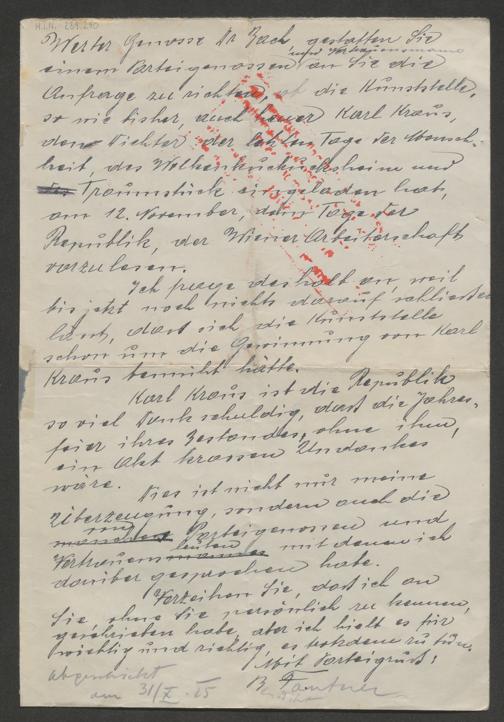 H.I.N. 239.240
Werter Genosse Dr Bach, gestatten Sie
und Vertrauensmann
einem Parteigenossen an Sie die
Anfrage zu richten, ob die Kunststelle,
so wie bisher, auch heuer Karl Kraus,
den Dichter der letzten Tage der Mensch-
heit, des Wolkenkuckucksheim und
Traumstück eingeladen hat,
am 12. November, dem Tage der
Republik, der Wiener Arbeiterschaft
vorzulesen.
Ich frage deshalb an, weil
bis jetzt noch nichts darauf schliessen
lässt, dass sich die Kunststelle
schon um die Gewinnung von Karl
Kraus bemüht hätte.
Karl Kraus ist die Republik
so viel Dank schuldig, dass die Jahres-
feier ihres Bestandes, ohne ihn,
ein Akt krassen Undankes
wäre.
Dies ist nicht nur meine
Überzeugung, sondern auch die
Parteigenossen und
Vertrauensleuten mit denen ich
darüber gesprochen habe.
Verzeihen Sie, dass ich an
Sie, ohne Sie persönlich zu kennen,
geschrieben habe, aber ich hielt es für
wichtig und richtig, es trotzdem zu tun.
Mit Parteigruss!
abgeschickt
am 31/X. 25
B.